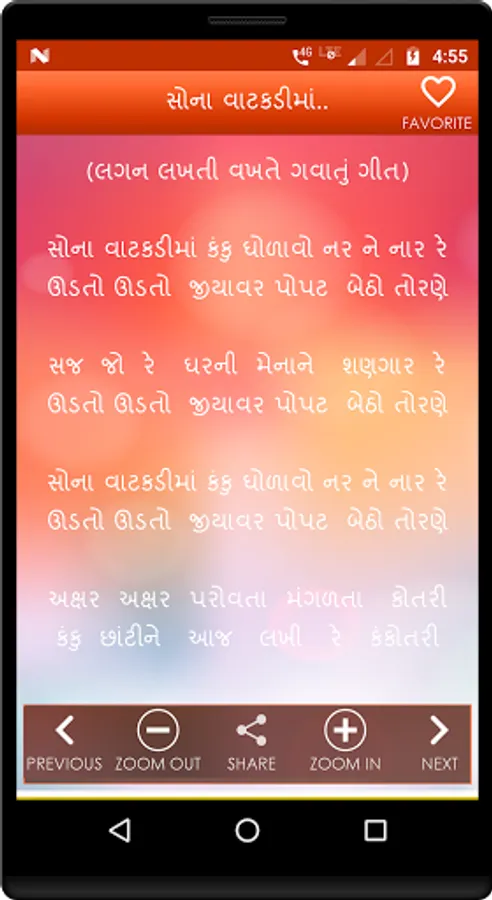 4G LTE 4:55
સોના વાટકડીમાં..
FAVORITE
(લગન લખતી વખતે ગવાતું ગીત)
સોના વાટકડીમાં કંકુ ઘોળાવો નર ને નાર રે
ઊડતો ઊડતો જીયાવર પોપટ બેઠો તોરણે
સજ જો રે ઘરની મેનાને શણગાર રે
ઊડતો ઊડતો જીયાવર પોપટ બેઠો તોરણે
સોના વાટકડીમાં કંકુ ઘોળાવો નર ને નાર રે
ઊડતો ઊડતો જીયાવર પોપટ બેઠો તોરણે
અક્ષર અક્ષર પરોવતા મંગળતા કોતરી
કંકુ છાંટીને આજ લખી રે કંકોતરી
PREVIOUS ZOOM OUT SHARE ZOOM IN NEXT